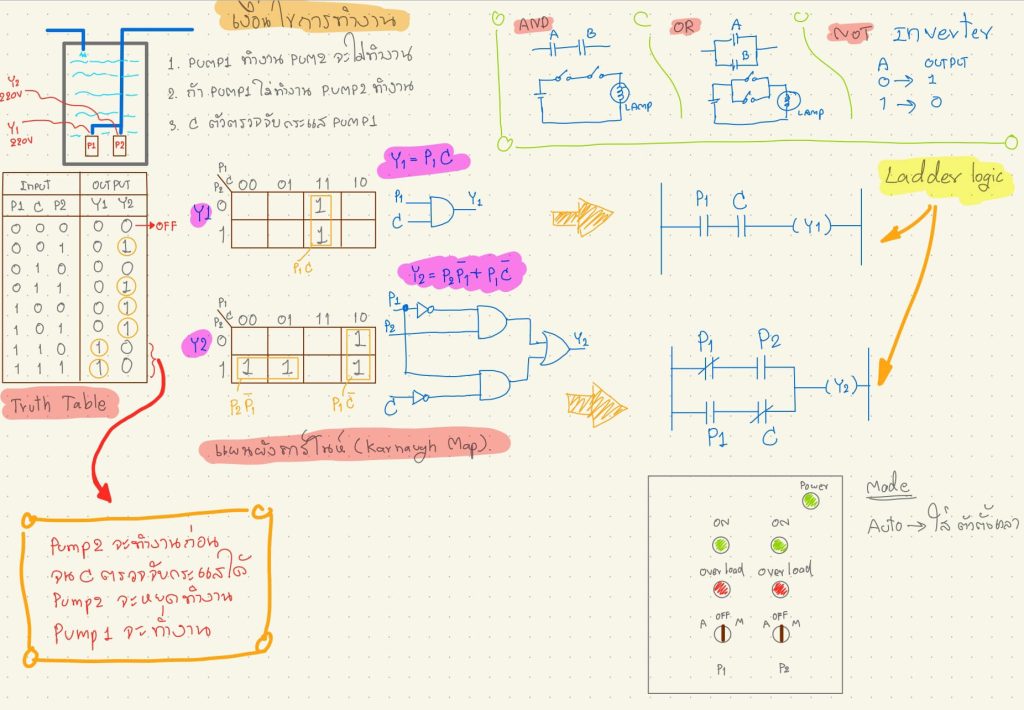 เงื่อนไขการทำงาน
1. PUMP1 ทำงาน PUM2 จะไม่ทำงาน
2. ถ้า PUMP1 ไม่ทำงาน PUMP2 ทำงาน
3. C ตัวตรวจจับกระแส PUMP1
Y2
220V
Y1
220V
P1 P2
AND
A B
LAMP
OR
A
B
LAMP
NOT Inverter
A OUTPUT
0 → 1
1 → 0
INPUT OUTPUT
P1 C P2 Y1 Y2
0 0 0 0 0 → OFF
0 0 1 0 1
0 1 0 0 0
0 1 1 0 1
1 0 0 0 1
1 0 1 0 1
1 1 0 1 0
1 1 1 1 0
Truth Table
Y1 = P1 C
P1
C
P2
00 01 11 10
Y1
0 1
1 1
P1 C
P1
C
Y1
Y2 = P2 P̄1 + P1 C̄
P1
C
P2
00 01 11 10
Y2
0 1
1 1 1 1
P2 P̄1
P1 C̄
P1
P2
C
Y2
แผนผังคาร์โนห์ (Karnaugh Map).
Ladder logic
P1 C
(Y1)
P1 P2
(Y2)
P1 C
Pump2 จะทำงานก่อน
จน C ตรวจจับกระแสได้
Pump2 จะหยุดทำงาน
Pump1 จะทำงาน
Power
ON ON
Overload Overload
OFF OFF
A M A M
P1 P2
Mode
Auto → ใส่ ตัวตั้งเวลา